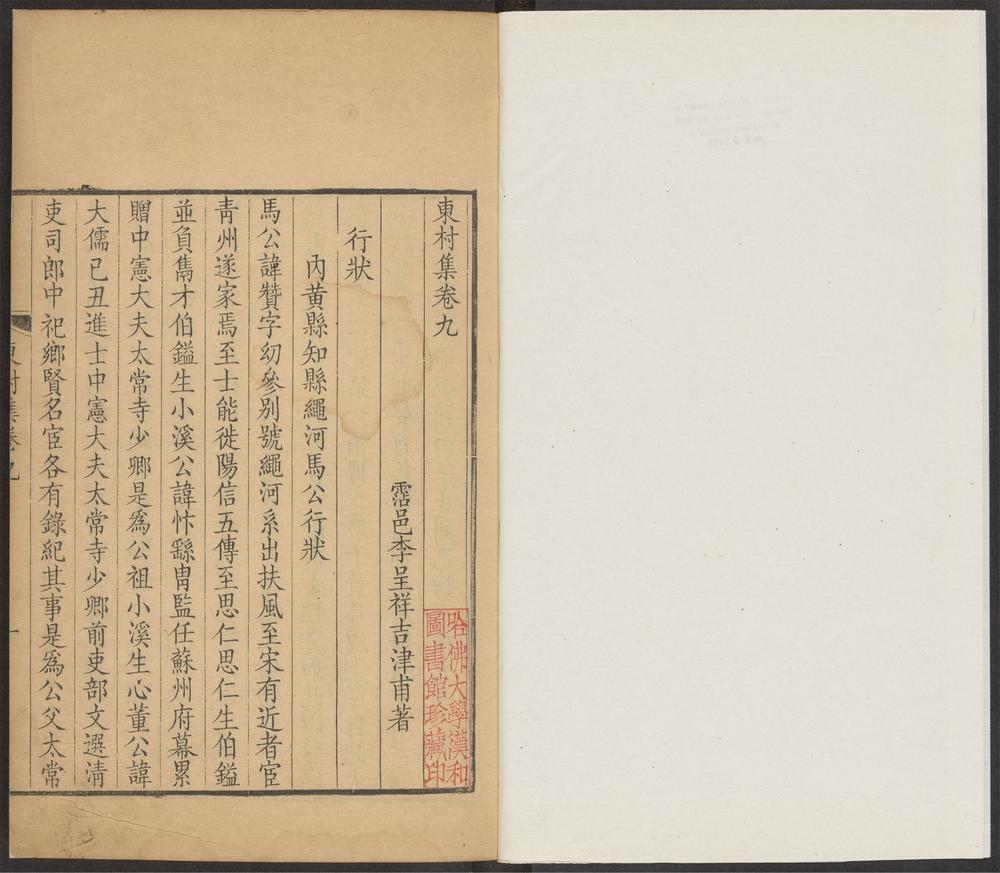 東村集卷九
霑邑李呈祥吉津甫著
行狀
內黃縣知縣繩河馬公行狀
馬公諱贊字㓜參别號繩河系出扶風至宋有近者宦
靑州遂家焉至士能徙陽信五傳至思仁思仁生伯鎰
並負雋才伯鎰生小溪公諱忭繇冑監任蘇州府幕累
贈中憲大夫太常寺少卿是爲公祖小溪生心董公諱
大儒己丑進士中憲大夫太常寺少卿前吏部文選淸
吏司郎中祀鄉賢名宦各有錄紀其事是爲公父太常
東村集卷九
一
哈佛大學漢和
圖書館珍藏印